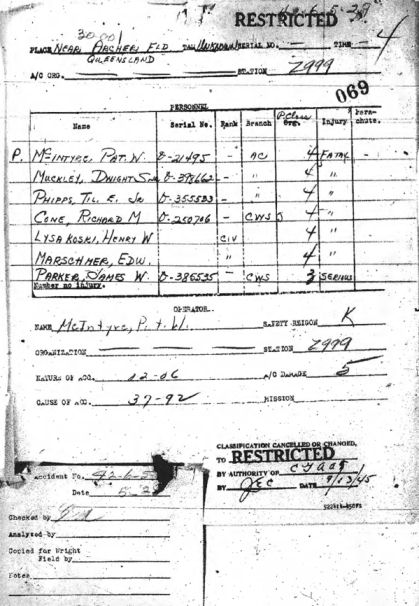 RESTRICTED 42-6-5-28
30.001
PLACE NEAR ARCHER FLD TAIL UNKNOWN SERIAL NO. TIME 4
QUEENSLAND
A/C ORG. STATION Z999
069
PERSONNEL
Name Serial No. Rank Branch P Class Org. Injury Para-chute.
P. McINTYRE, PAT. W. O-21495 - AC 4 FATAL -
MUCKLEY, DWIGHT S. Jr O-398662 - " 4 "
PHIPPS, TIL. E. JR O-355533 - " 4 "
CONE, RICHARD M O-250706 - CWS 4 "
LYSAKOSKI, HENRY W CIV 4 "
MARSCHNER, EDW. " 4 "
PARKER, JAMES W. O-386535 - CWS 3 SERIOUS
Number no injury.
OPERATOR
NAME McIntyre, P. W. SAFETY REIGON K
ORGANIZATION STATION Z999
NATURE OF ACC. 12-06 A/C DAMAGE 5
CAUSE OF ACC. 37-92 MISSION
CLASSIFICATION CANCELLED OR CHANGED,
TO RESTRICTED
BY AUTHORITY OF
BY JEC DATE 9/13/45
Accident No. 42-6-5
Date 5-28
Checked by
Analyzed by
Copied for Wright
Field by
Notes